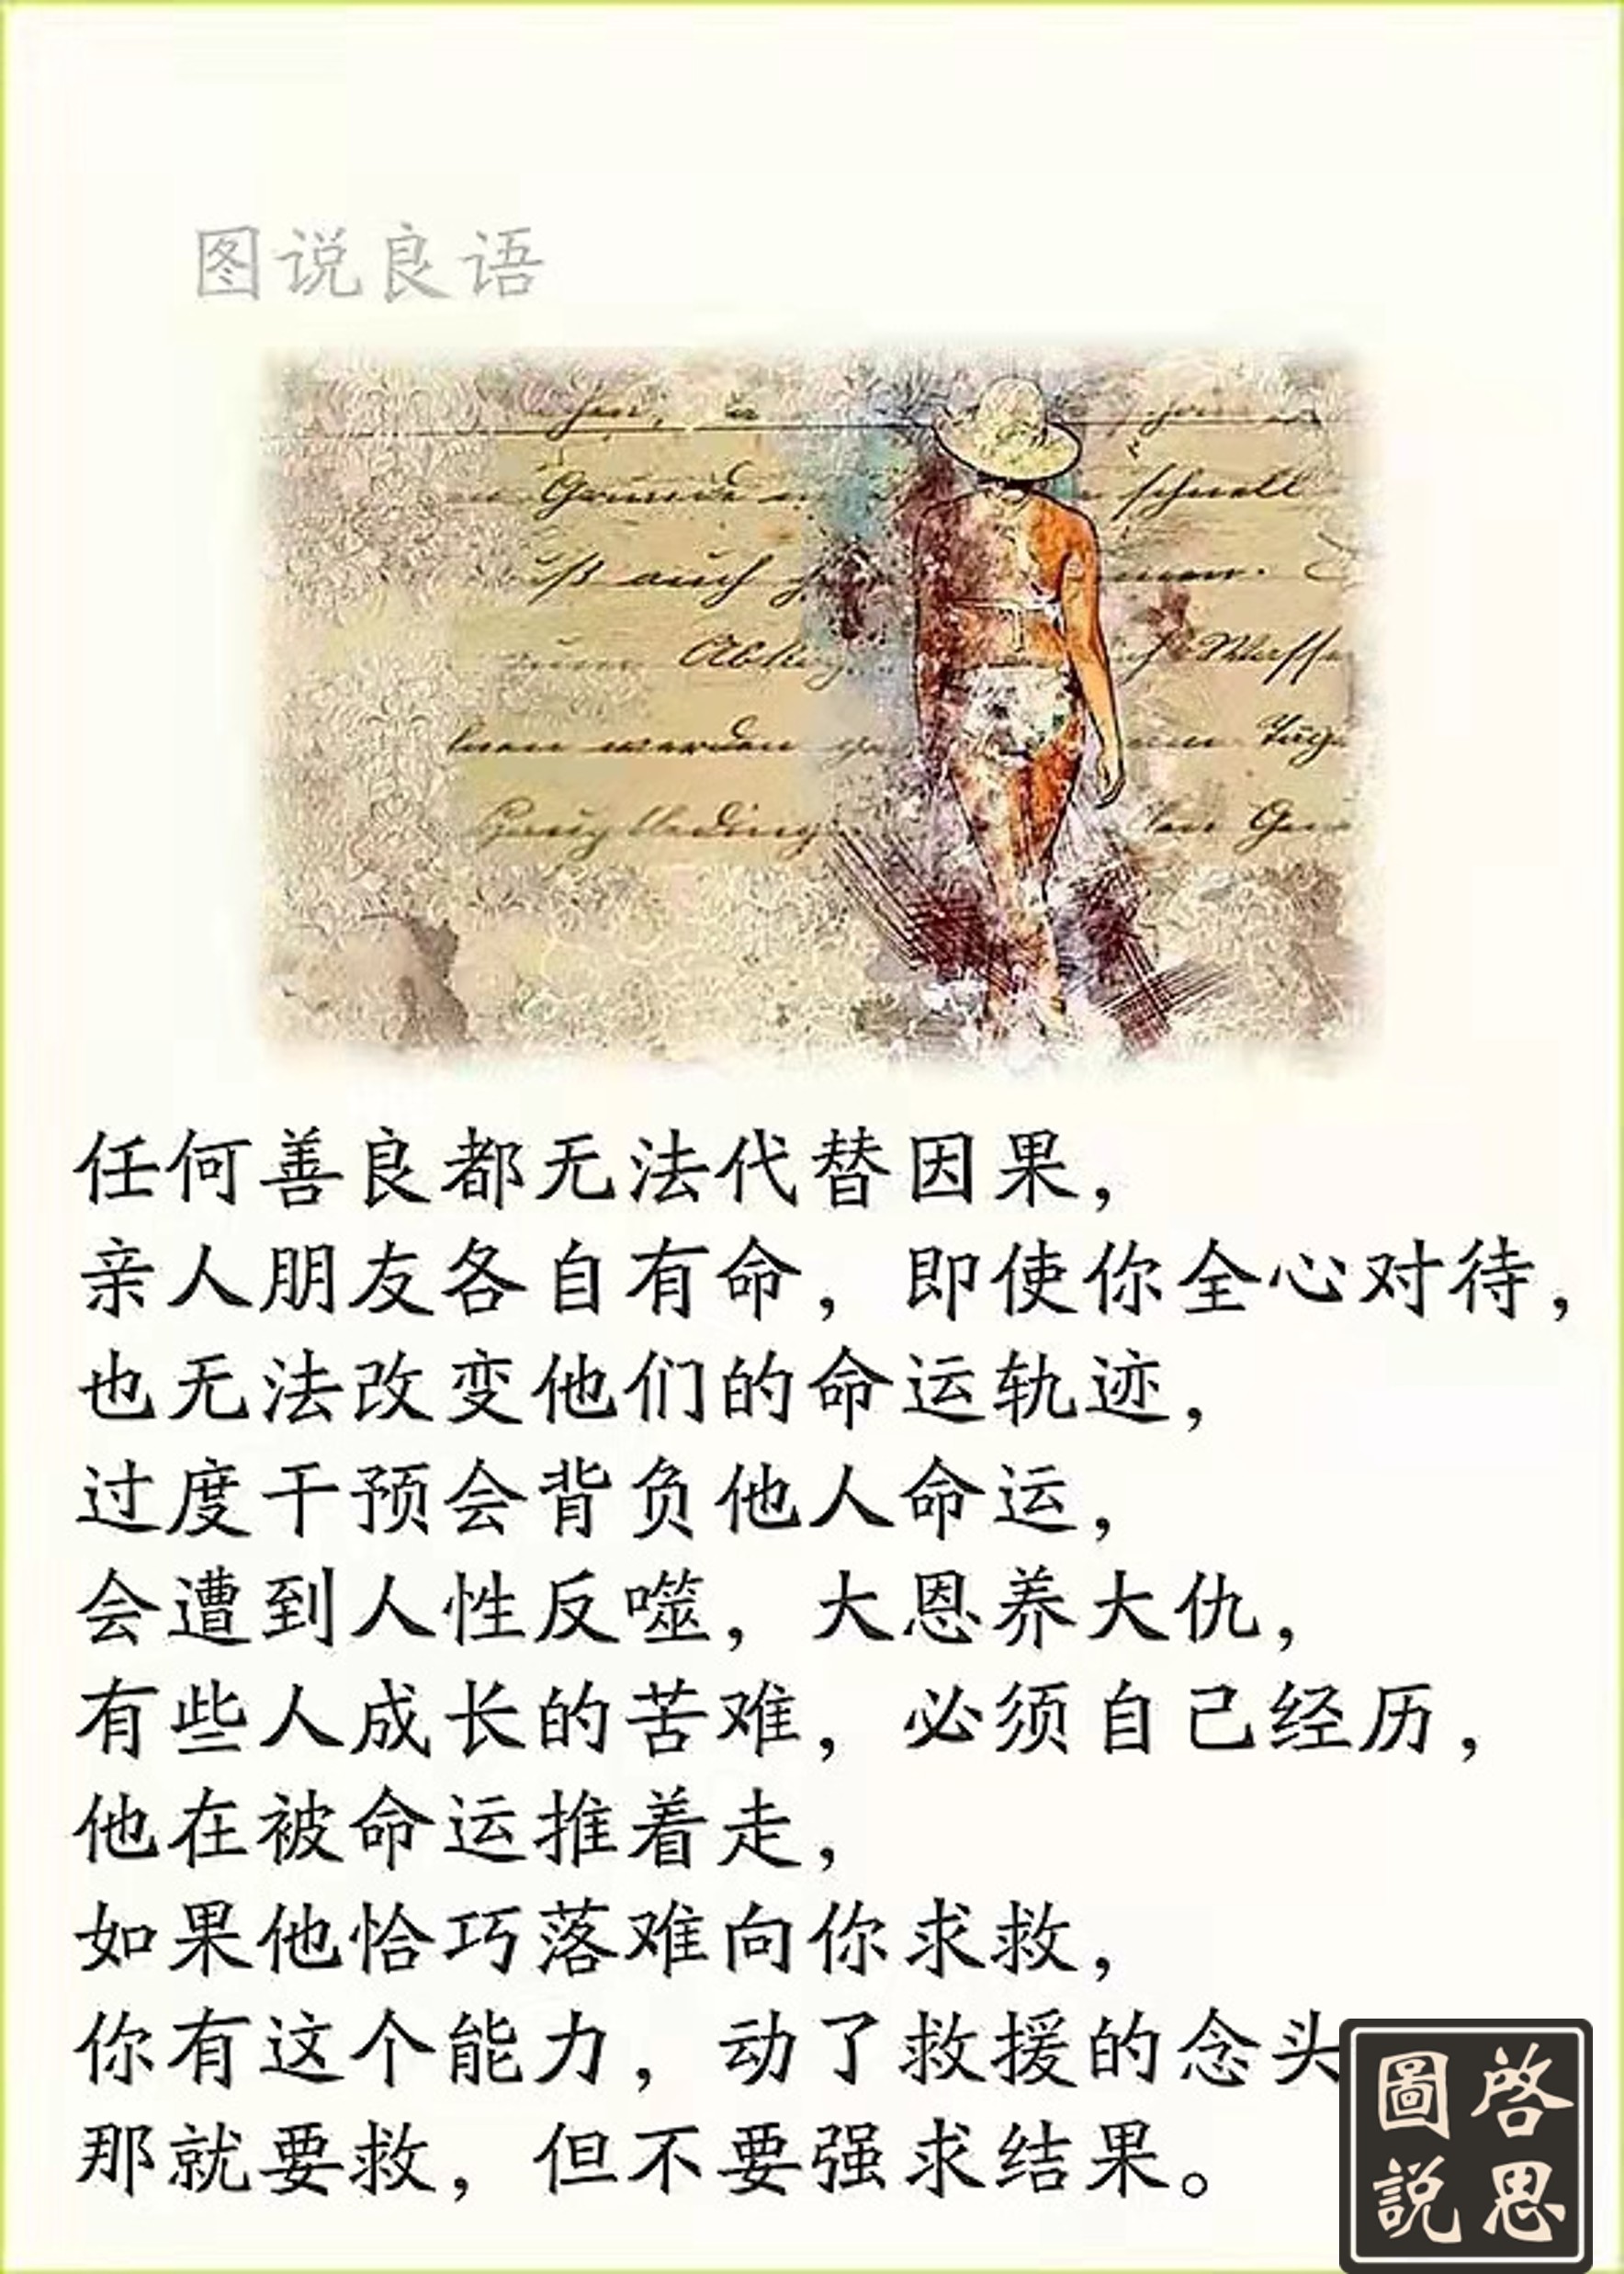 图说良语
Grunde
schnell
auch
werden
任何善良都无法代替因果，
亲人朋友各自有命，即使你全心对待，
也无法改变他们的命运轨迹，
过度干预会背负他人命运，
会遭到人性反噬，大恩养大仇，
有些人成长的苦难，必须自己经历，
他在被命运推着走，
如果他恰巧落难向你求救，
你有这个能力，动了救援的念头
那就要救，但不要强求结果。
啓思
圖說